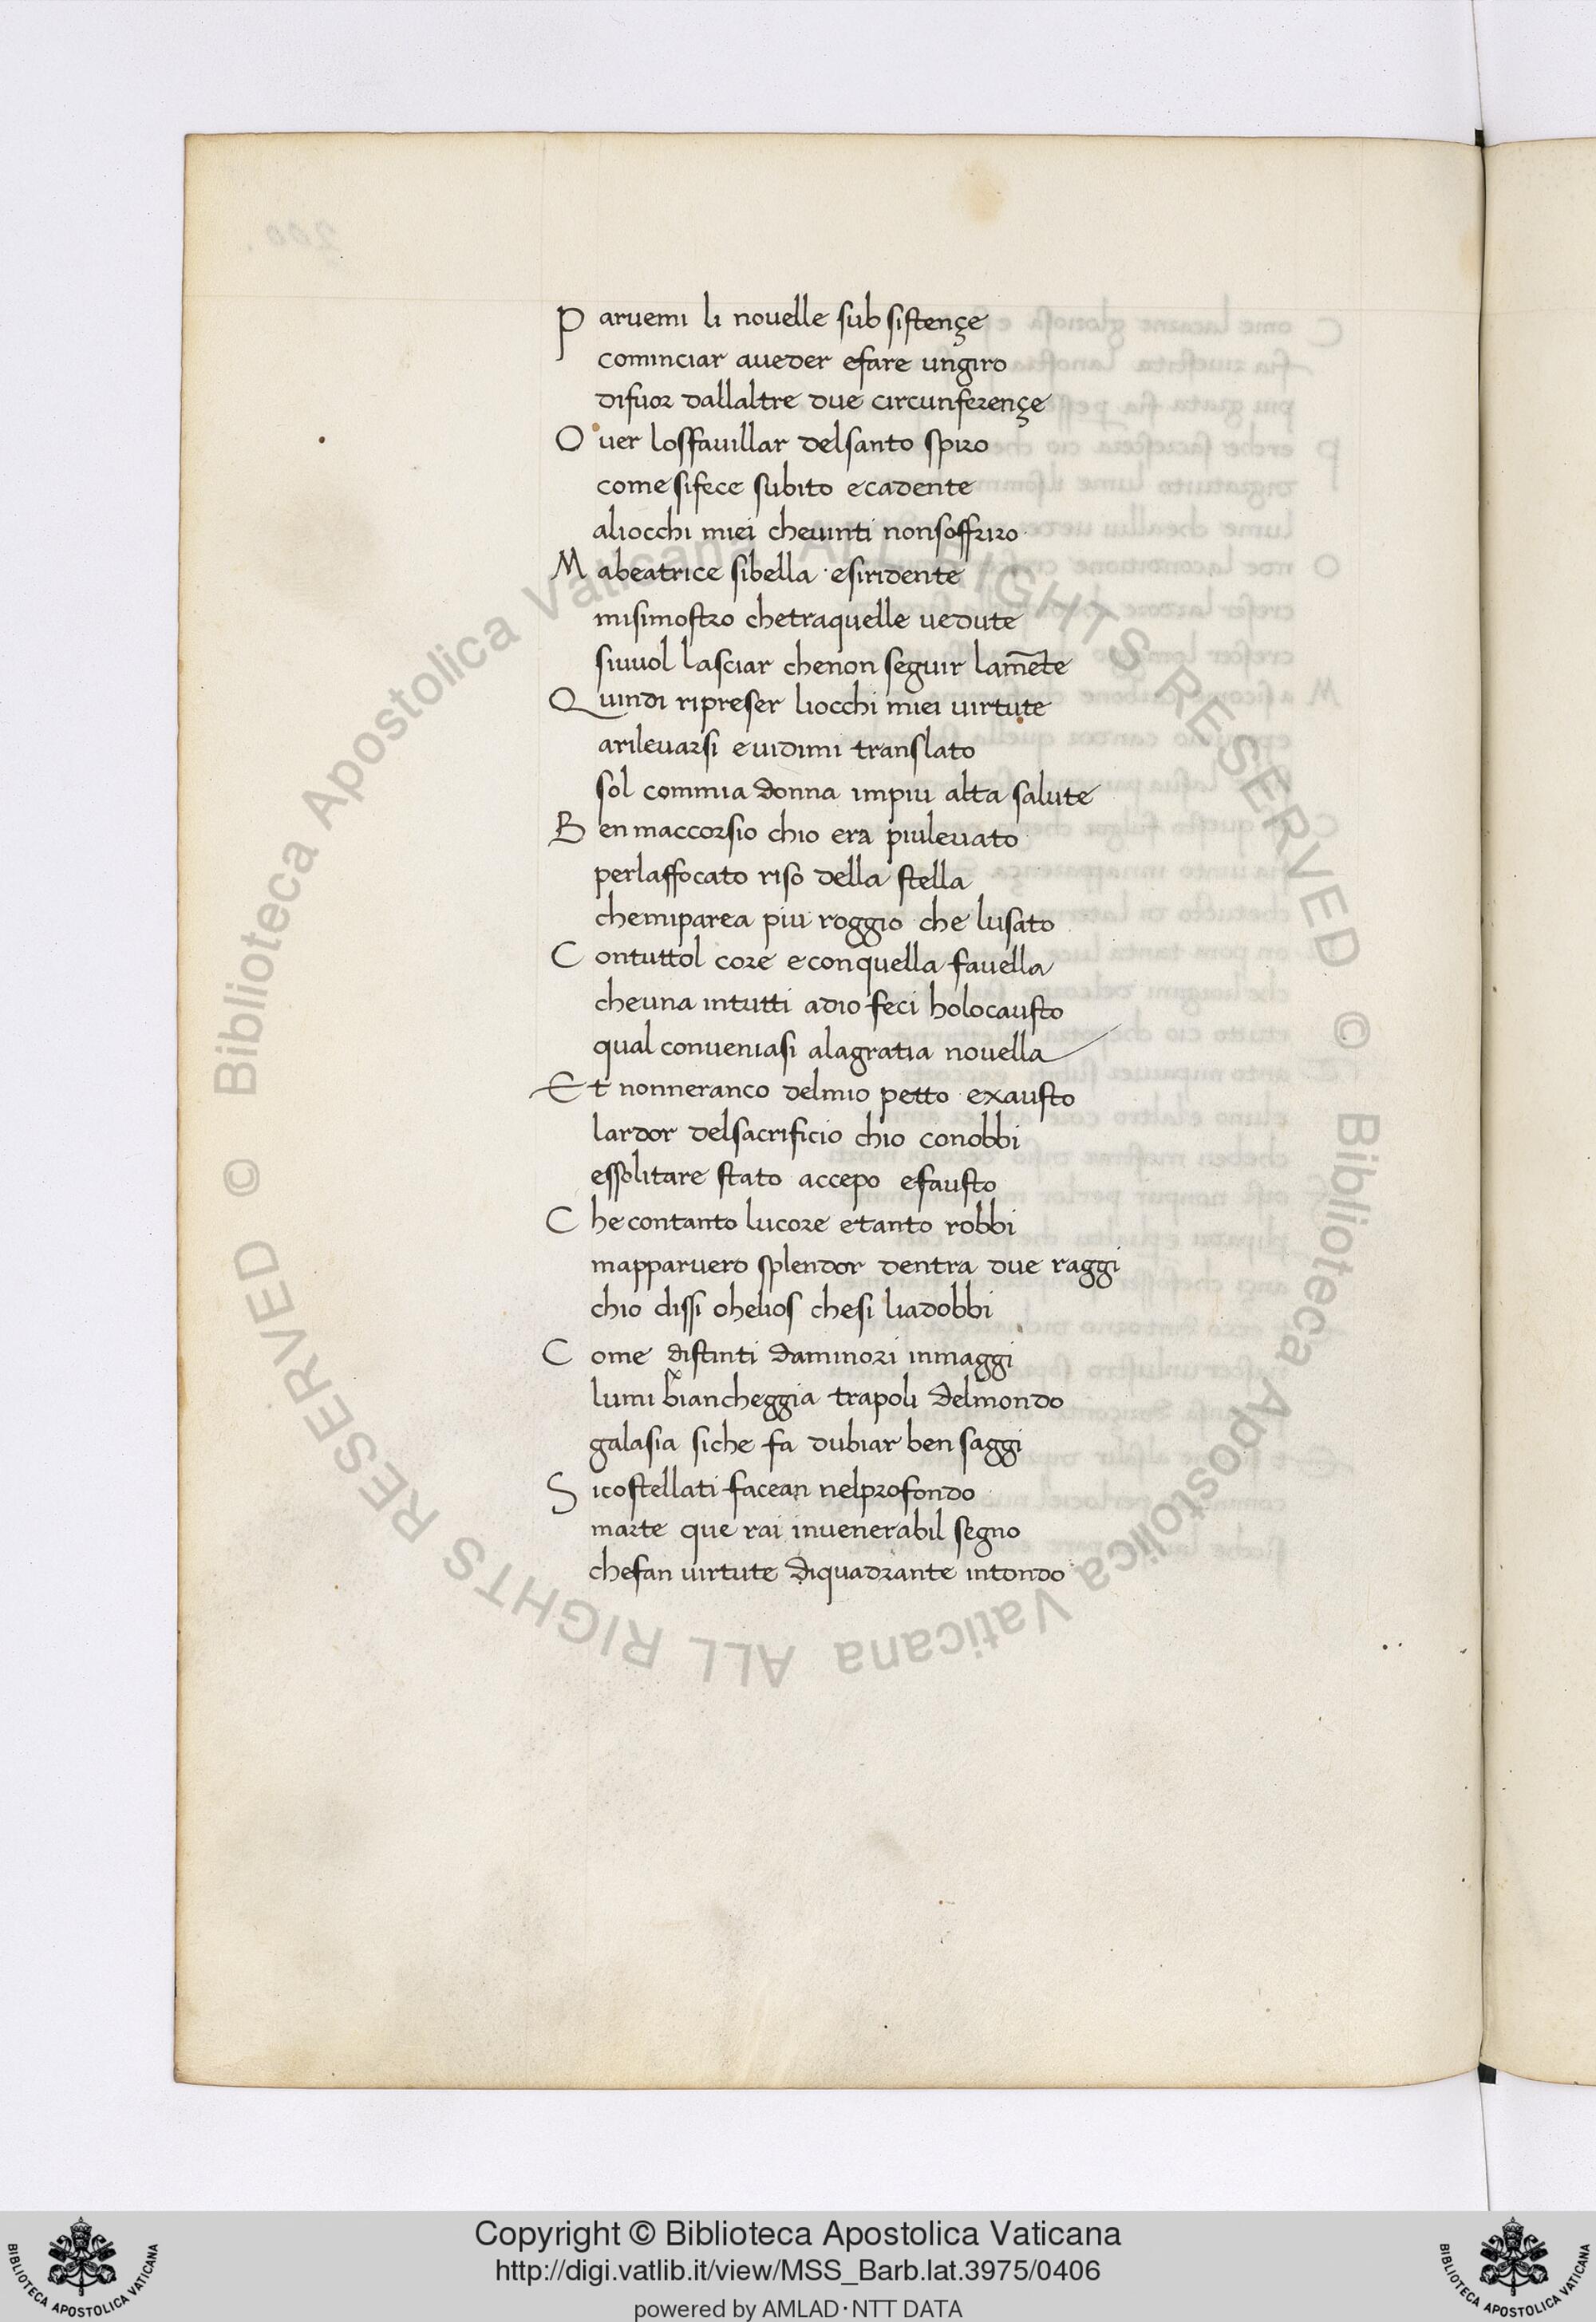 Paruemi li nouelle subsistençe
cominciar aueder efare ungiro
difuor dallaltre due circunferençe
Ouer losfauillar delsanto spiro
come sifece subito ecadente
aliocchi miei cheuinti nonsoffriro
Mabeatrice sibella esiridente
misimostro chetraquelle uedute
siuuol lasciar chenon seguir lam̃ete
Quindi ripreser liocchi miei uirtute
arileuarsi euidimi translato
sol commia donna impiu alta salute
Ben maccorsio chio era piuleuato
perlaffocato riso della stella
chemiparea piu roggio che lusato
Contuttol core econquella fauella
cheuna intutti adio feci holocausto
qual conueniasi alagratia nouella
Et nonneranco delmio petto exausto
lardor delsacrificio chio conobbi
essolitare stato accepo efausto
Che contanto lucore etanto robbi
mapparuero splendor dentra due raggi
chio dissi ohelios chesi liadobbi
Come distinti daminori inmaggi
lumi biancheggia trapoli delmondo
galasia siche fa dubiar ben saggi
Sicostellati facean nelprofondo
marte que rai inuenerabil segno
chefan uirtute diquadrante intondo
Copyright © Biblioteca Apostolica Vaticana
http://digi.vatlib.it/view/MSS_Barb.lat.3975/0406
powered by AMLAD·NTT DATA
BIBLIOTECA APOSTOLICA VATICANA
BIBLIOTECA APOSTOLICA VATICANA
© Biblioteca Apostolica Vaticana ALL RIGHTS RESERVED © Biblioteca Apostolica Vaticana ALL RIGHTS RESERVED